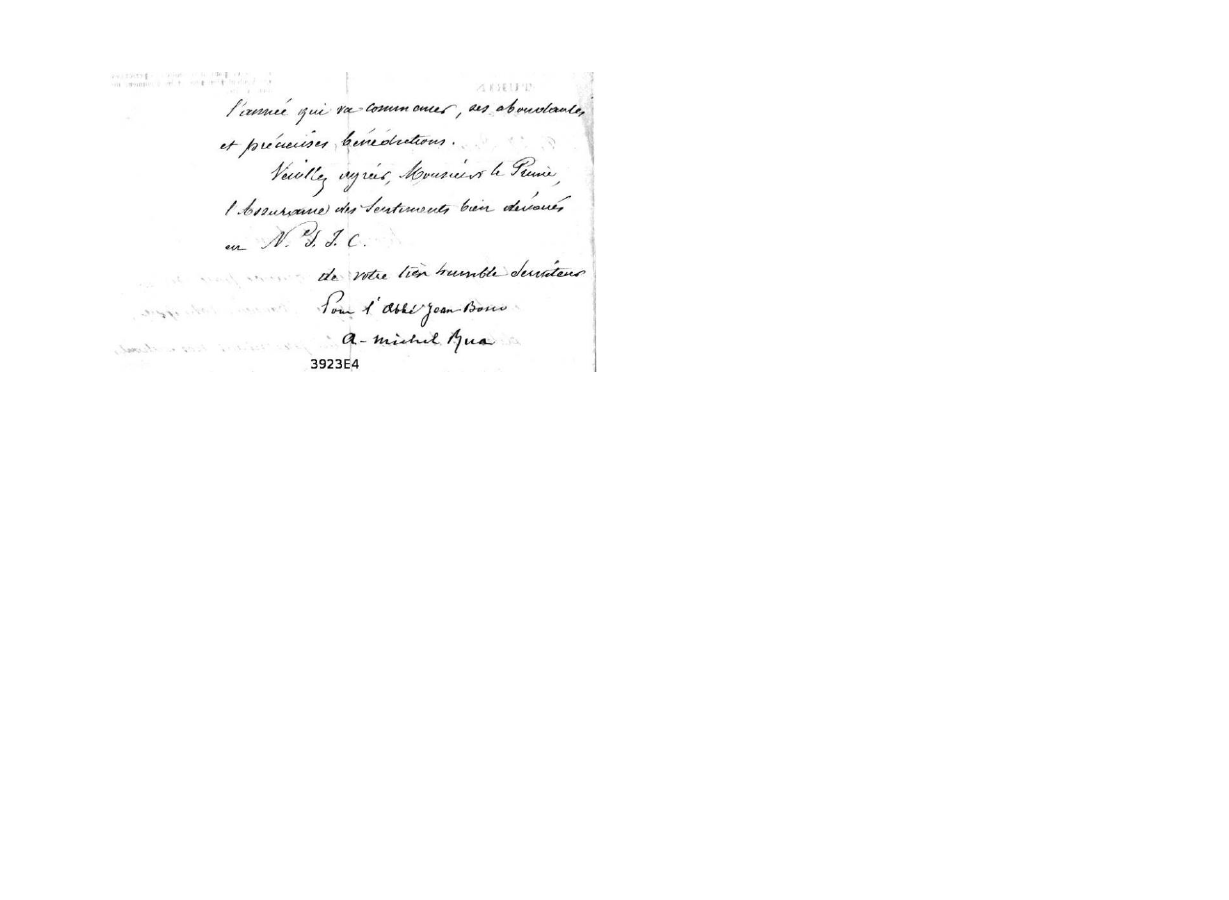 l'année qui va commencer, ses abondantes
et précieuses bénédictions.
Veuillez agréer, Monsieur le
l'Assurance des Sentiments bien dévoués
en N. S. J. C.
de votre très humble Serviteur
Pour l'Abbé Jean Bosco
A - Michel Rua
3923E4